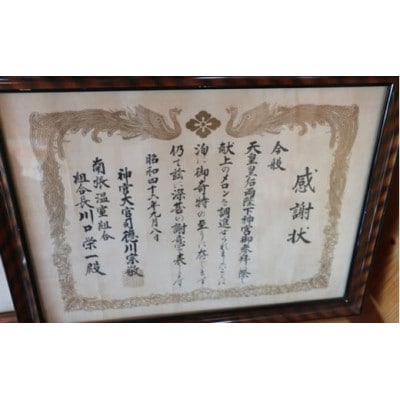 感謝状
今般
天皇皇后両陛下神宮御参拝に際し
献上のメロンを調進
洵に御奇特の至りに存じます
仍て茲に深甚の謝意を表します
昭和四十六年九月八日
神宮大宮司徳川宗敬
南張温室組合
組合長川口栄一殿